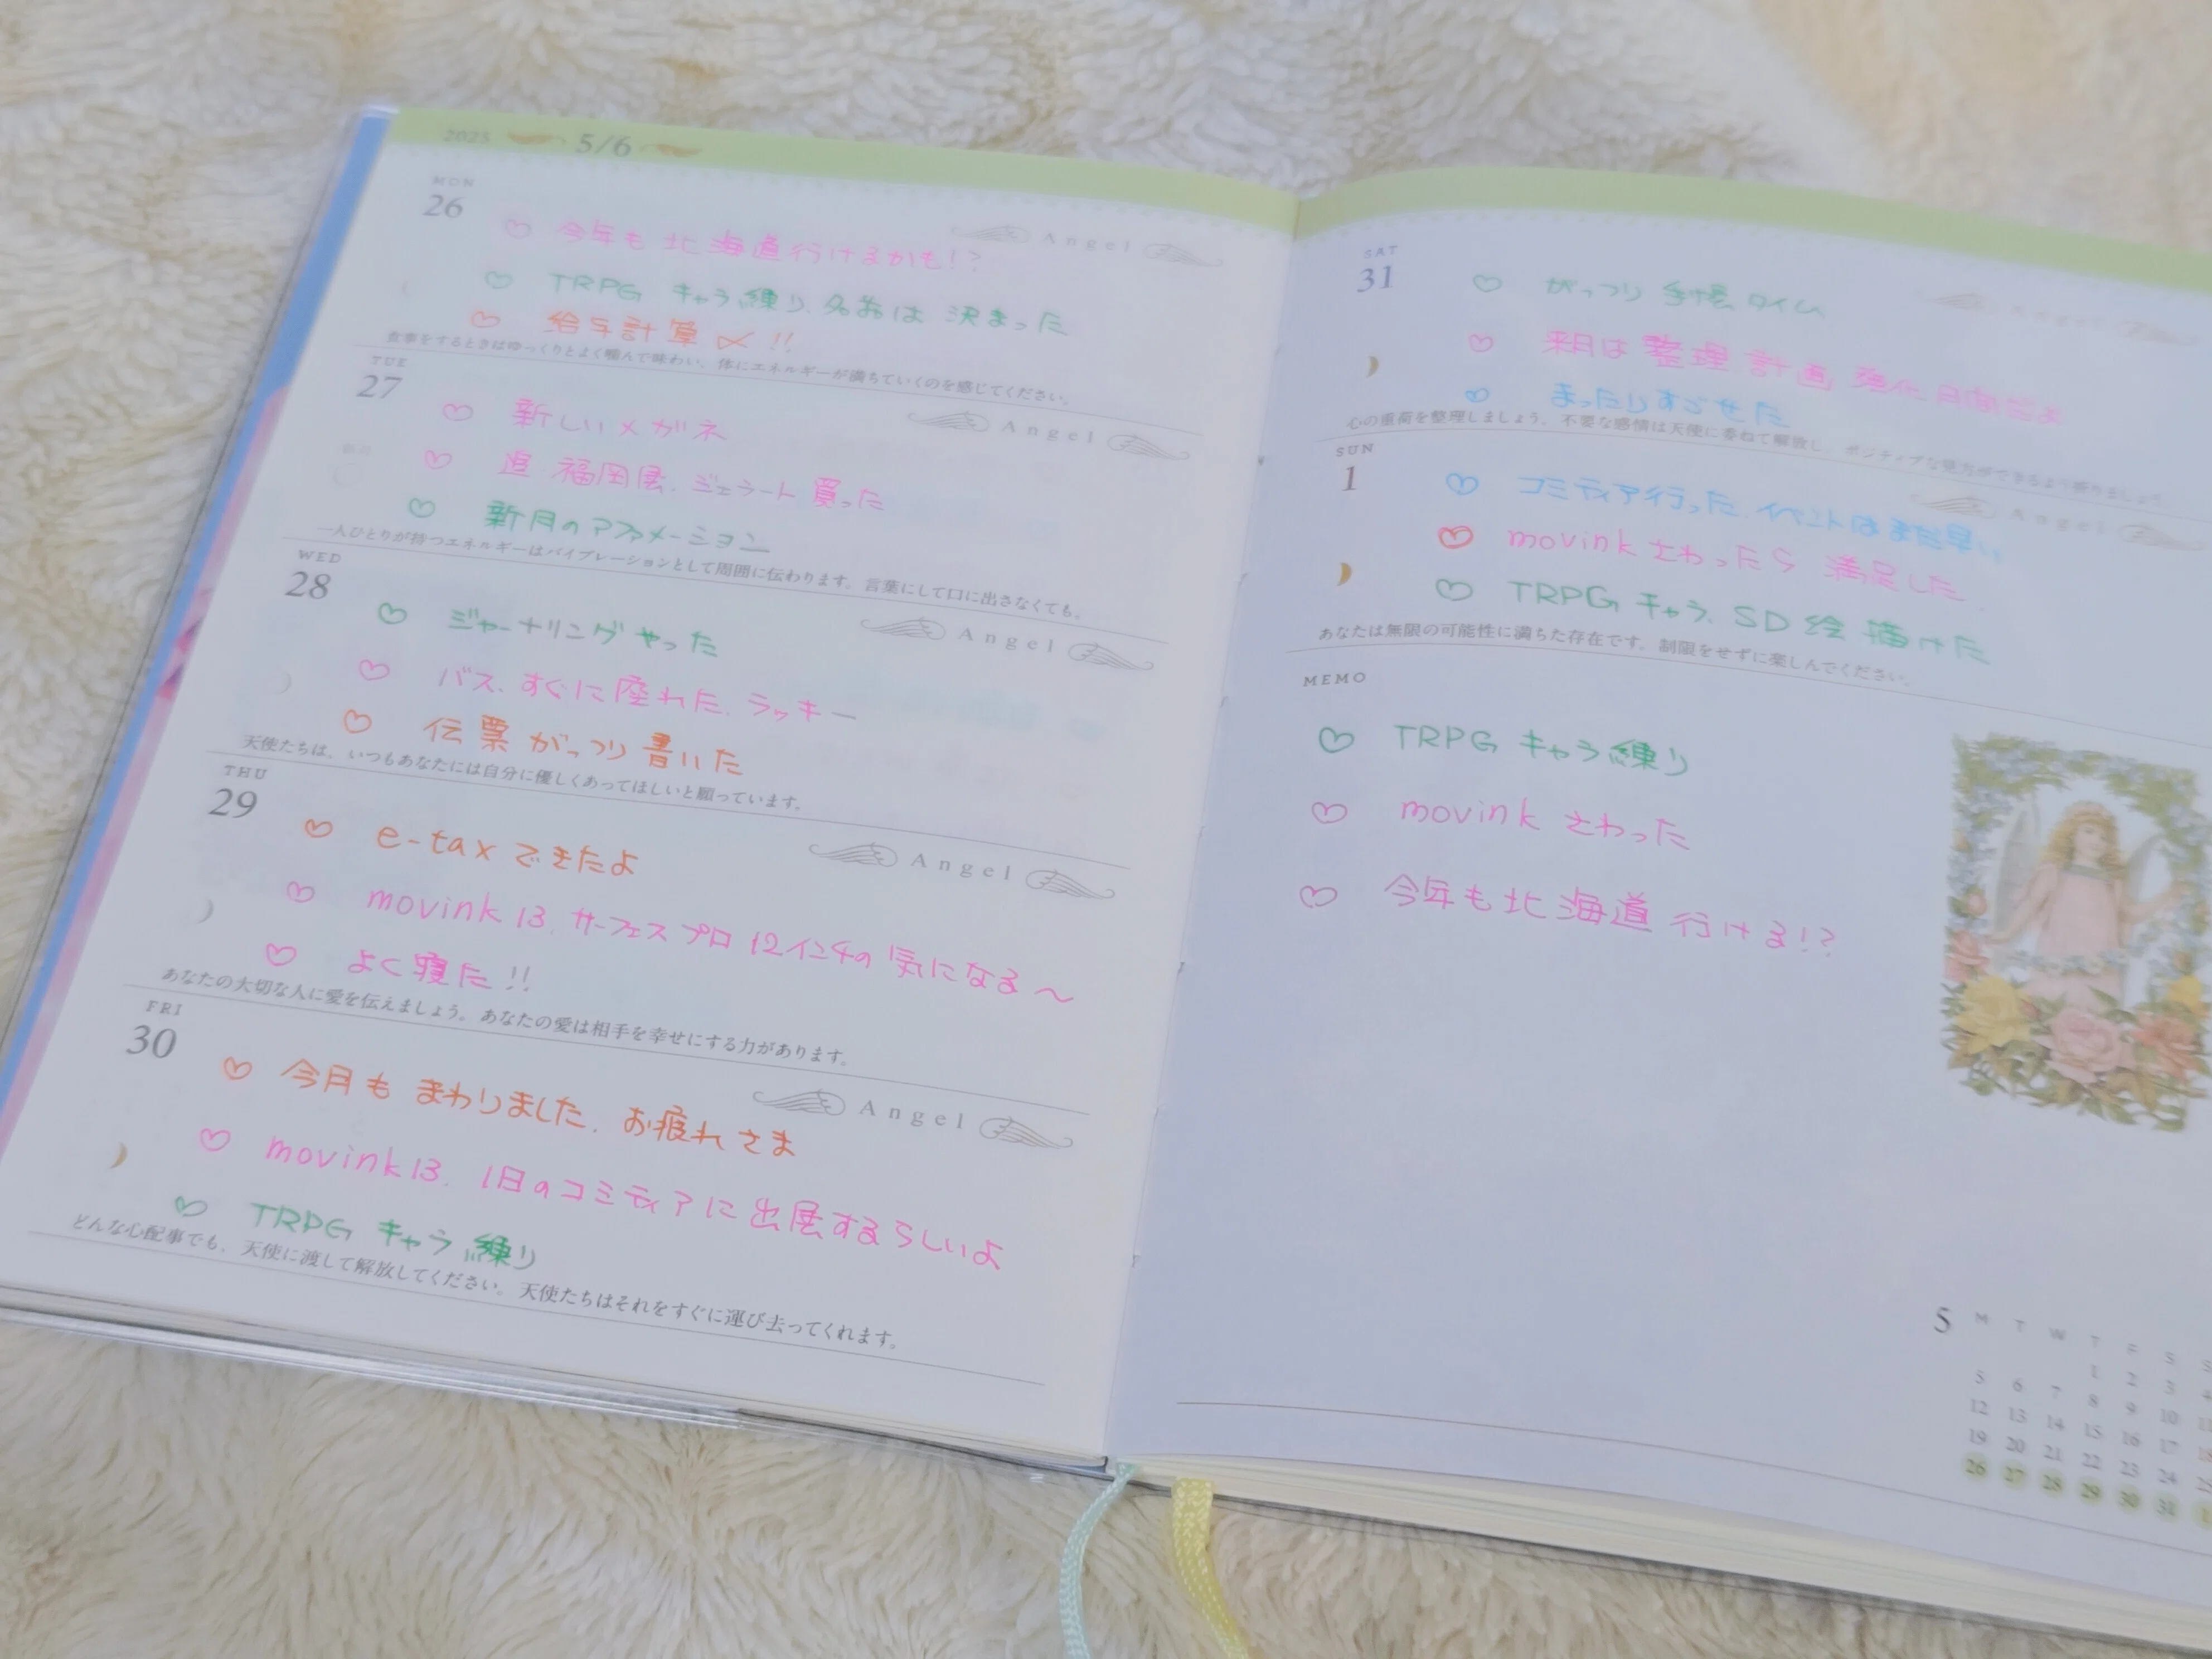 2025 5/6
MON
26
Angel
♡ 今年も北海道行けるかも!?
♡ TRPG キャラ練り、名前は決まった
♡ 給与計算〆!!
食事をするときはゆっくりとよく噛んで味わい、体にエネルギーが満ちていくのを感じてください。
TUE
27
Angel
新月
♡ 新しいメガネ
♡ 福岡展、ジェラート買った
♡ 新月のアファメーション
一人ひとりが持つエネルギーはバイブレーションとして周囲に伝わります。言葉にして口に出さなくても。
WED
28
Angel
♡ ジャーナリングやった
♡ バス、すぐに座れた、ラッキー
♡ 伝票がっつり書いた
天使たちは、いつもあなたには自分に優しくあってほしいと願っています。
THU
29
Angel
♡ e-taxできたよ
♡ movink 13、サーフェスプロ 12インチの気になる〜
♡ よく寝た!!
あなたの大切な人に愛を伝えましょう。あなたの愛は相手を幸せにする力があります。
FRI
30
Angel
♡ 今月もまわりました、お疲れさま
♡ movink13、1日のコミティアに出展するらしいよ
♡ TRPG キャラ練り
どんな心配事でも、天使に渡して解放してください。天使たちはそれをすぐに運び去ってくれます。
SAT
31
Angel
♡ がっつり手帳タイム
♡ 来月は整理計画強化月間だよ
♡ まったりすごせた
心の重荷を整理しましょう。不要な感情は天使に委ねて解放し、ポジティブな見方ができるよう祈りましょう。
SUN
1
Angel
♡ コミティア行った、イベントはまだ早い
♡ movinkさわったら満足した
♡ TRPGキャラ、SD絵描けた
あなたは無限の可能性に満ちた存在です。制限をせずに楽しんでください。
MEMO
♡ TRPG キャラ練り
♡ movink さわった
♡ 今年も北海道行ける!?
5 M T W T F S S
1 2 3 4
5 6 7 8 9 10 11
12 13 14 15 16 17 18
19 20 21 22 23 24 25
26 27 28 29 30 31 1